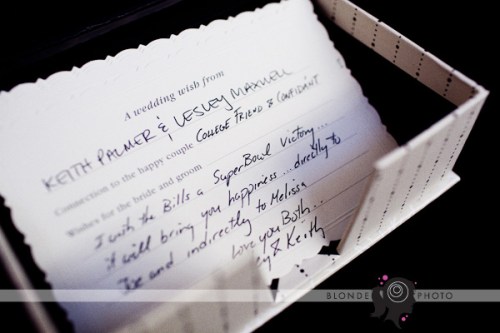 A wedding wish from
KEITH PALMER & LESLEY MAXWELL
Connection to the happy couple COLLEGE FRIEND & CONFIDANT
Wishes for the bride and groom
I wish the Bills a SuperBowl Victory...
it will bring you happiness... directly to
Joe and indirectly to Melissa
love you Both..
& Keith
BLONDE PHOTO